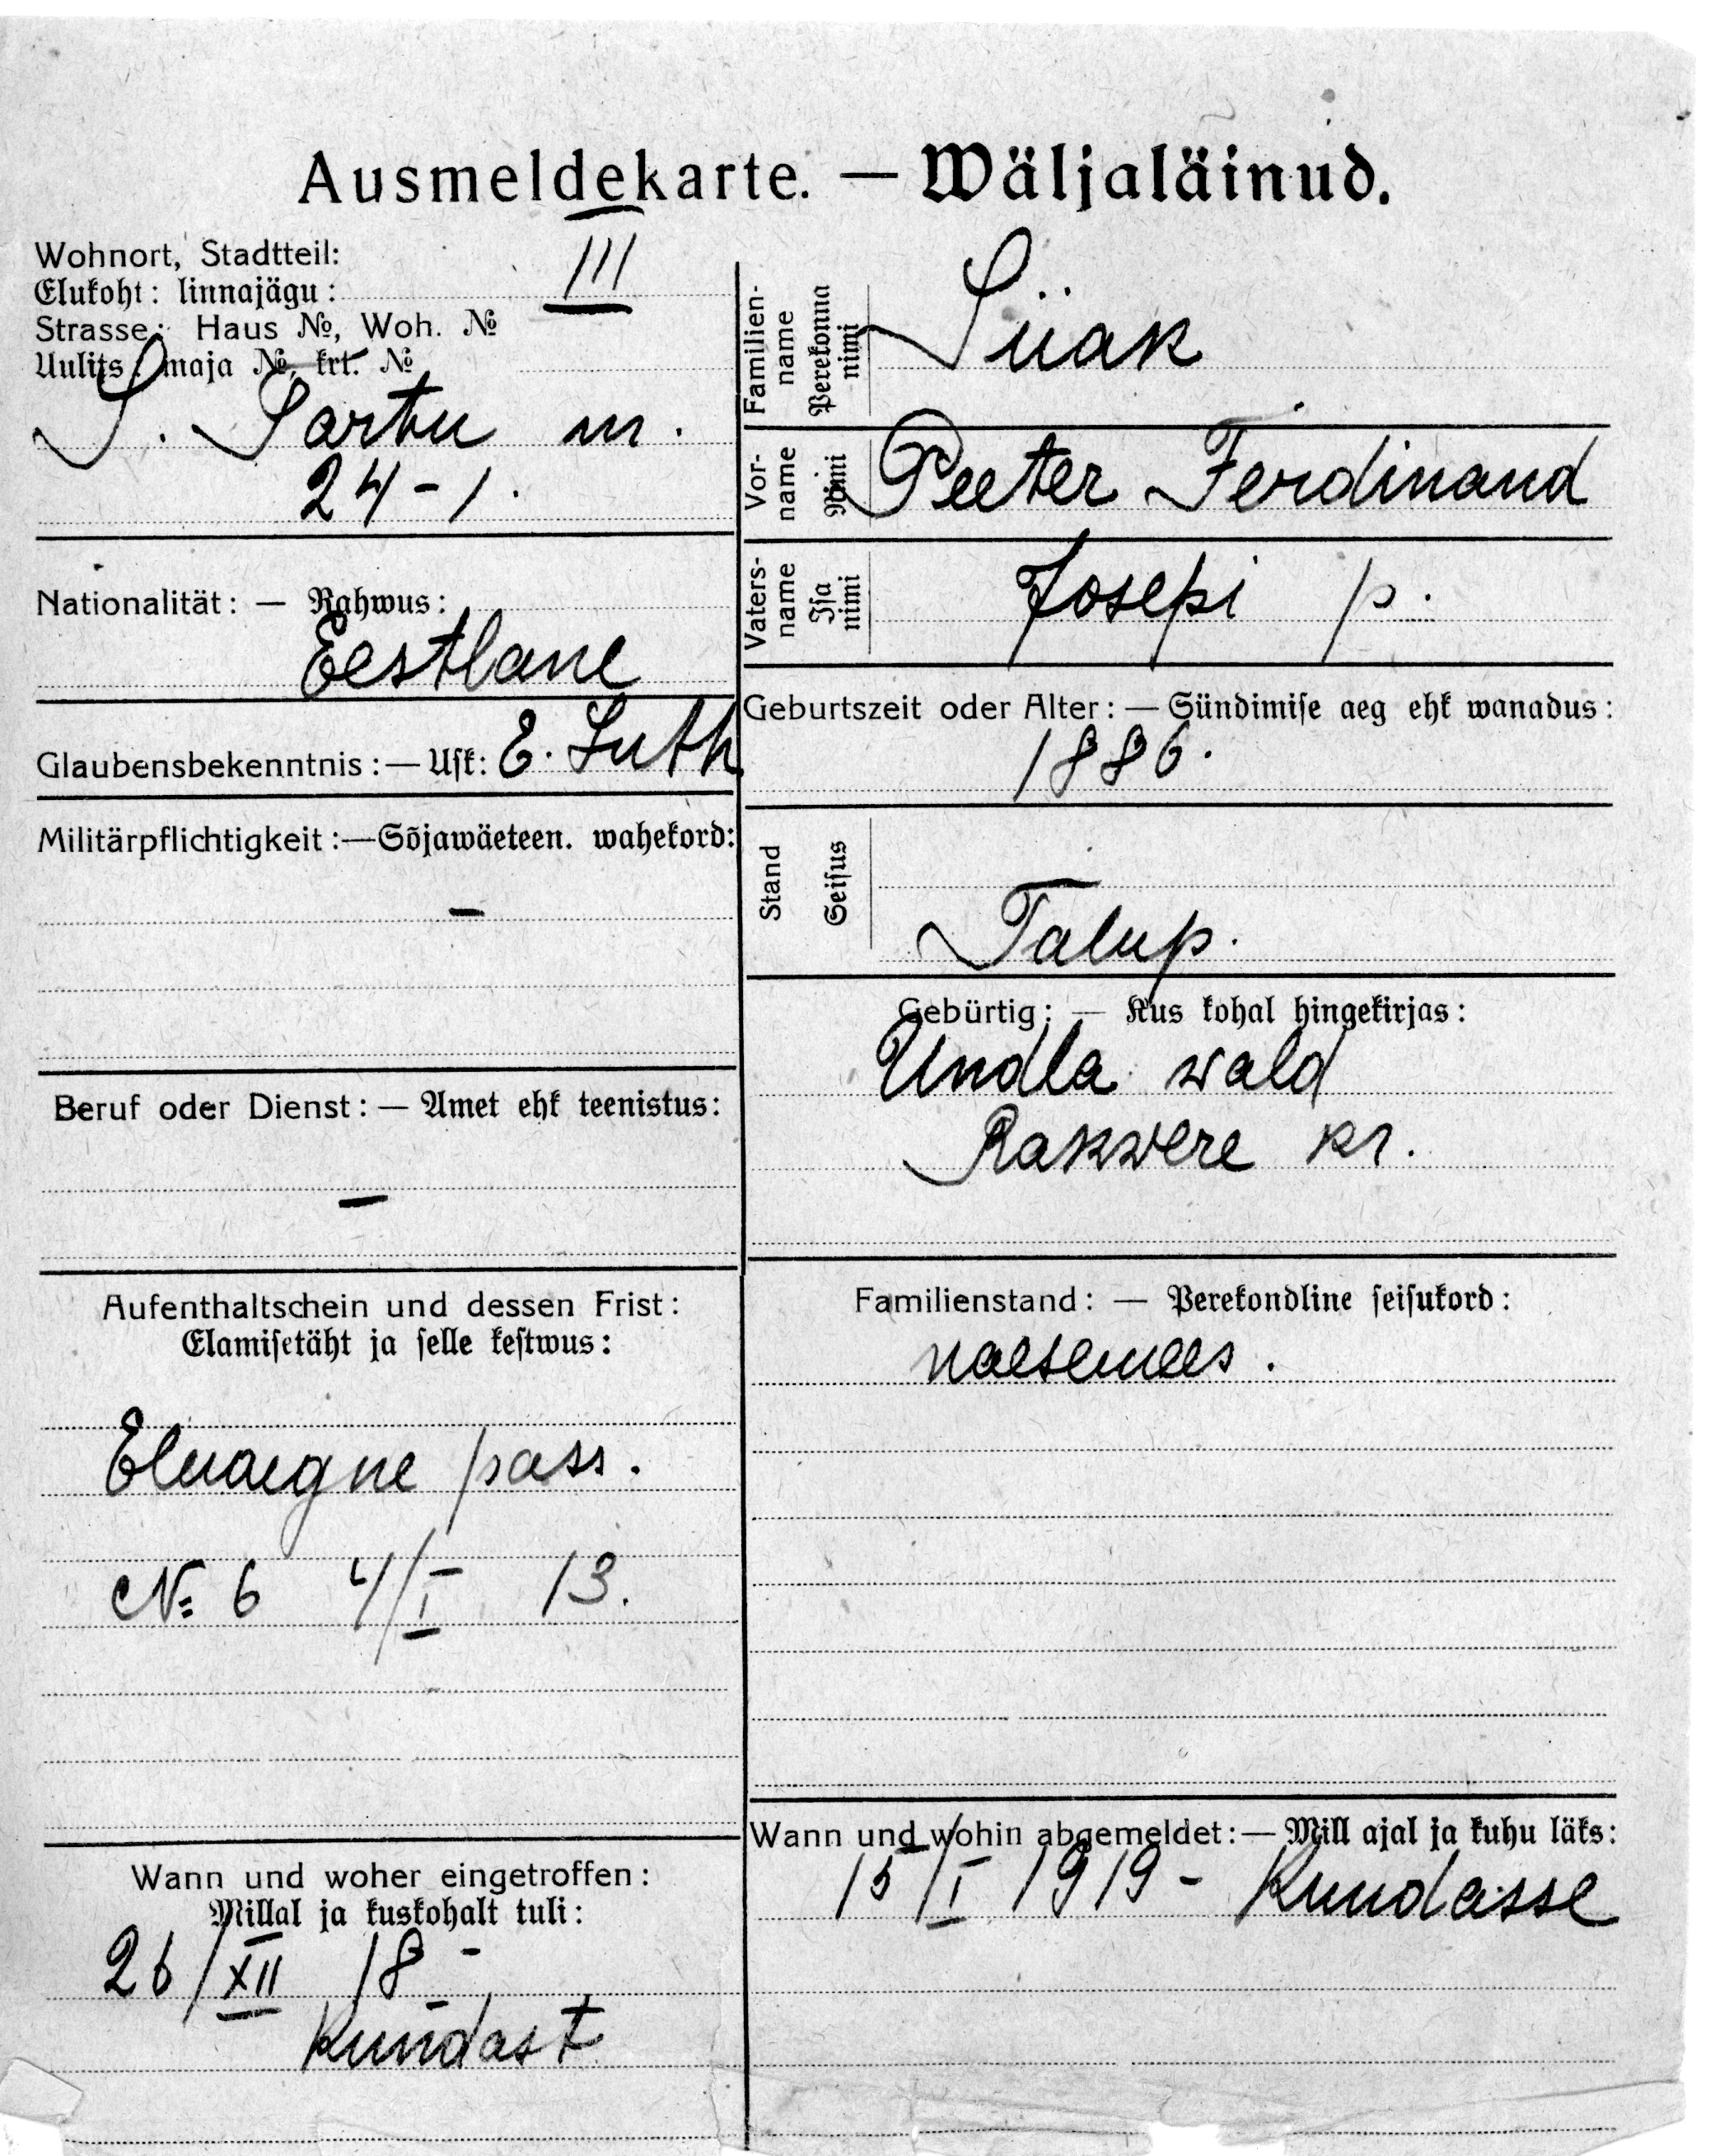 Ausmeldekarte. — Wäljaläinud.
Wohnort, Stadtteil:
Elukoht: linnajägu:
III
Strasse: Haus №, Woh. №
Uulits: maja №, krt. №
S. Tartu m.
24-1.
Familien-name
Perekonna nimi
Siiak
Vor-name
Nimi
Peeter Ferdinand
Vaters-name
Isa nimi
Josepi p.
Nationalität: — Rahwus:
Eestlane
Glaubensbekenntnis: — Usk: E. Luth
Geburtszeit oder Alter: — Sündimise aeg ehk wanadus:
1886.
Militärpflichtigkeit: — Sõjawäeteen. wahekord:
—
Stand
Seisus
Talup.
Gebürtig: — Kus kohal hingekirjas:
Undla wald
Rakwere kr.
Beruf oder Dienst: — Amet ehk teenistus:
—
Aufenthaltschein und dessen Frist:
Elamisetäht ja selle kestwus:
Eluaegne pass.
№ 6 4/I 13.
Familienstand: — Perekondline seisukord:
naesemees.
Wann und woher eingetroffen:
Millal ja kuskohalt tuli:
26/XII 18 -
Kundast
Wann und wohin abgemeldet: — Mill ajal ja kuhu läks:
15/I 1919 - Kundasse